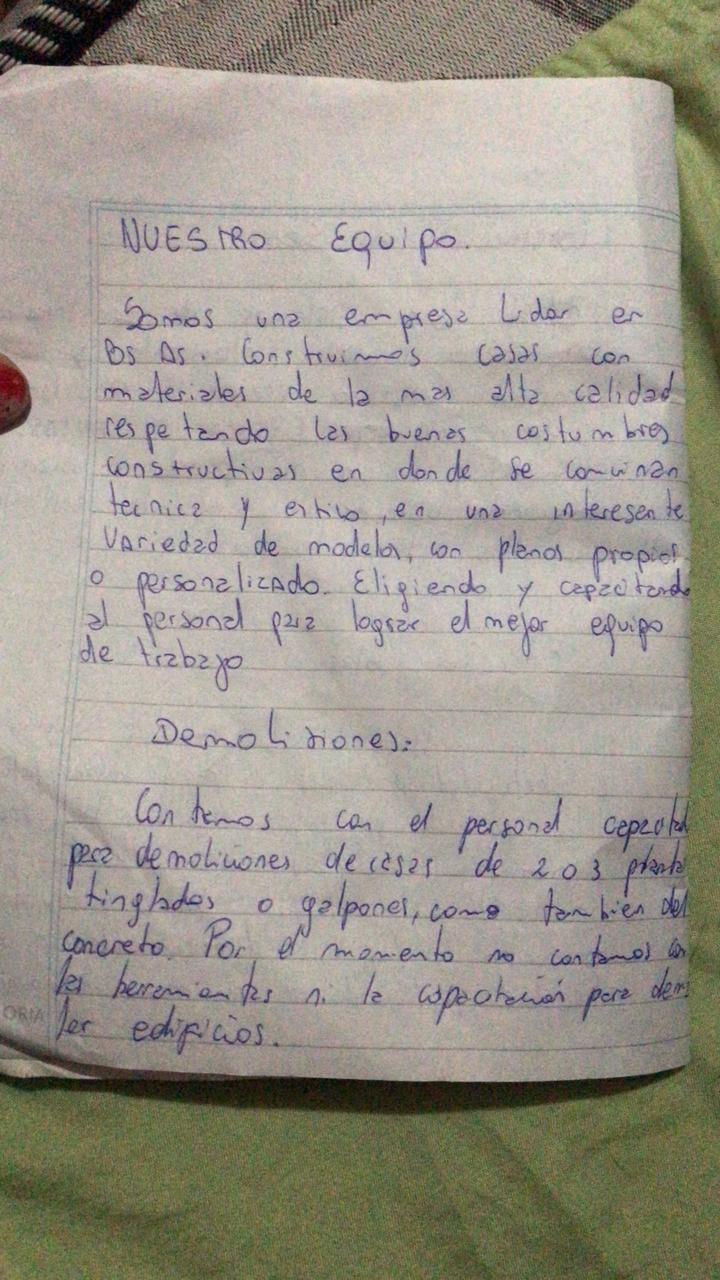 NUESTRO Equipo.
Somos una empresa Lider en
BS AS. Construimos casas con
materiales de la mas alta calidad
respetando las buenas costumbres
constructivas en donde se convinan
tecnica y estilo, en una interesante
variedad de modelos, con planos propios
o personalizado. Eligiendo y capacitando
al personal para lograr el mejor equipo
de trabajo
Demoliciones:
Contamos con el personal capacitad
para demoliciones de casas de 2 o 3 planta
tinglados o galpones, como tambien del
concreto. Por el momento no contamos con
las herramientas ni la capacitacion para demo
ler edificios.
ORIA